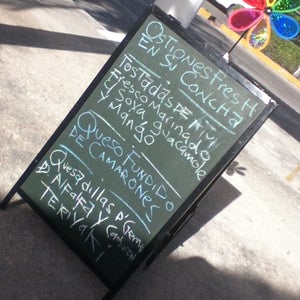 OPCIONES FRESH
EN SU CONCHA
TOSTADAS DE
Fresco Marinado
y Soya, guacamole
y Mango
QUESO FUNDIDO
DE CAMARONES
Quesadillas D'
TERIYAKI